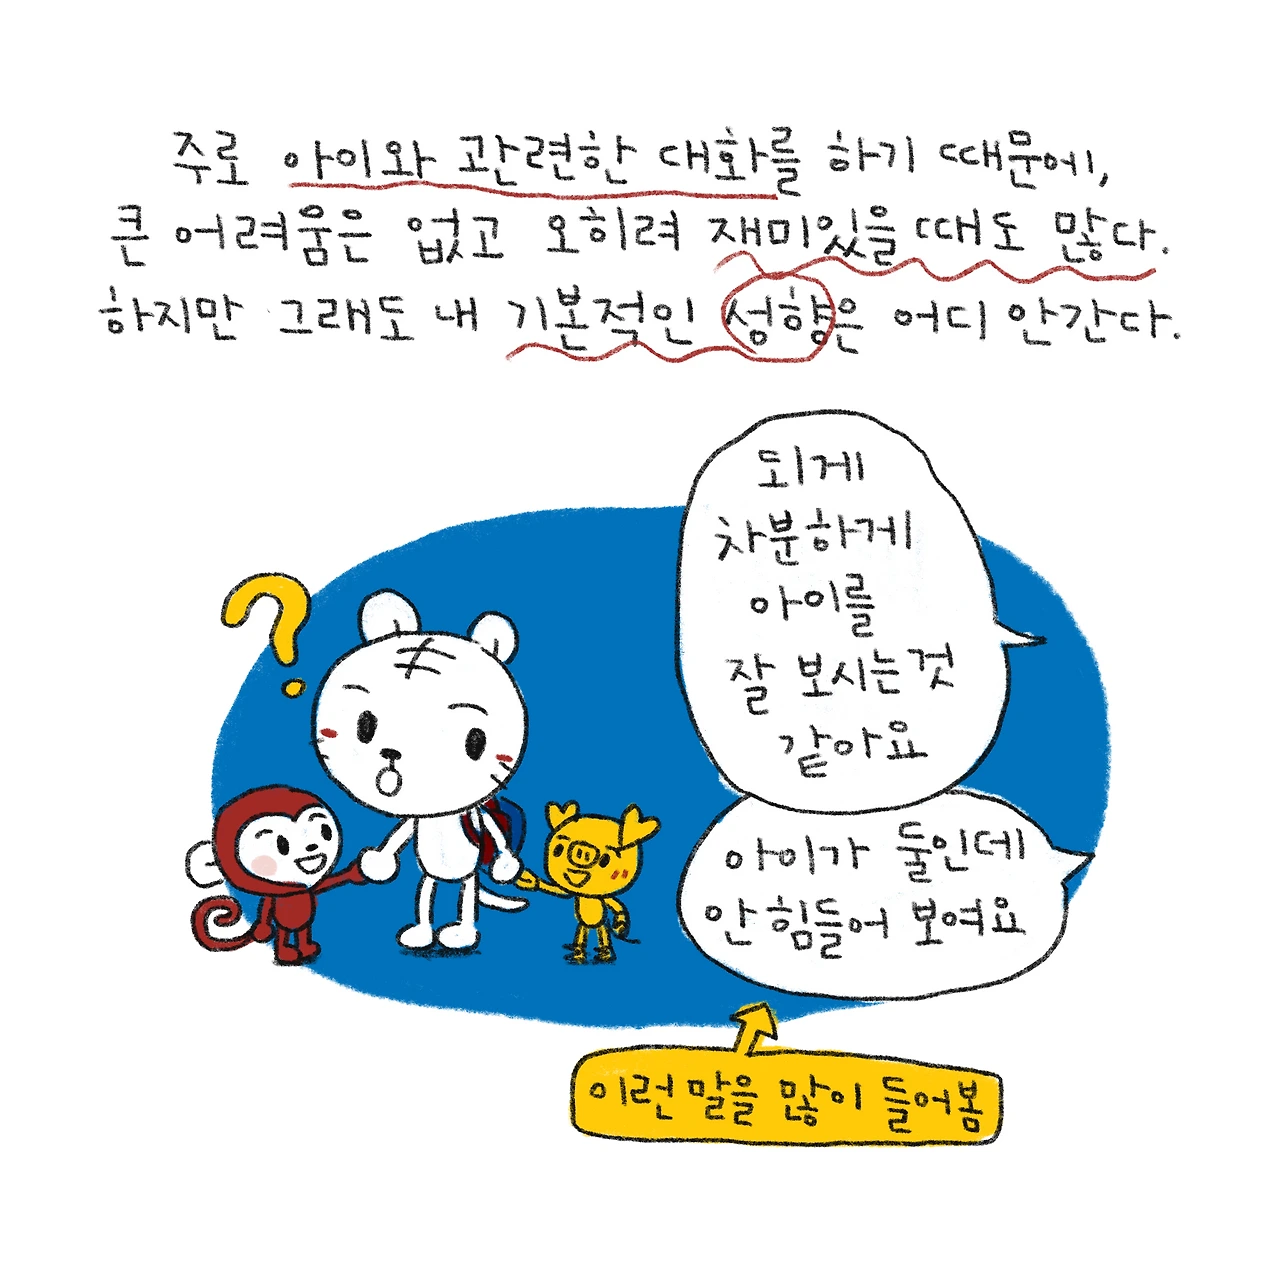 주로 아이와 관련한 대화를 하기 때문에,
큰 어려움은 없고 오히려 재미있을 때도 많다.
하지만 그래도 내 기본적인 성향은 어디 안간다.
되게
차분하게
아이를
잘 보시는것
같아요
아이가 둘인데
안 힘들어 보여요
이런 말을 많이 들어봄
?